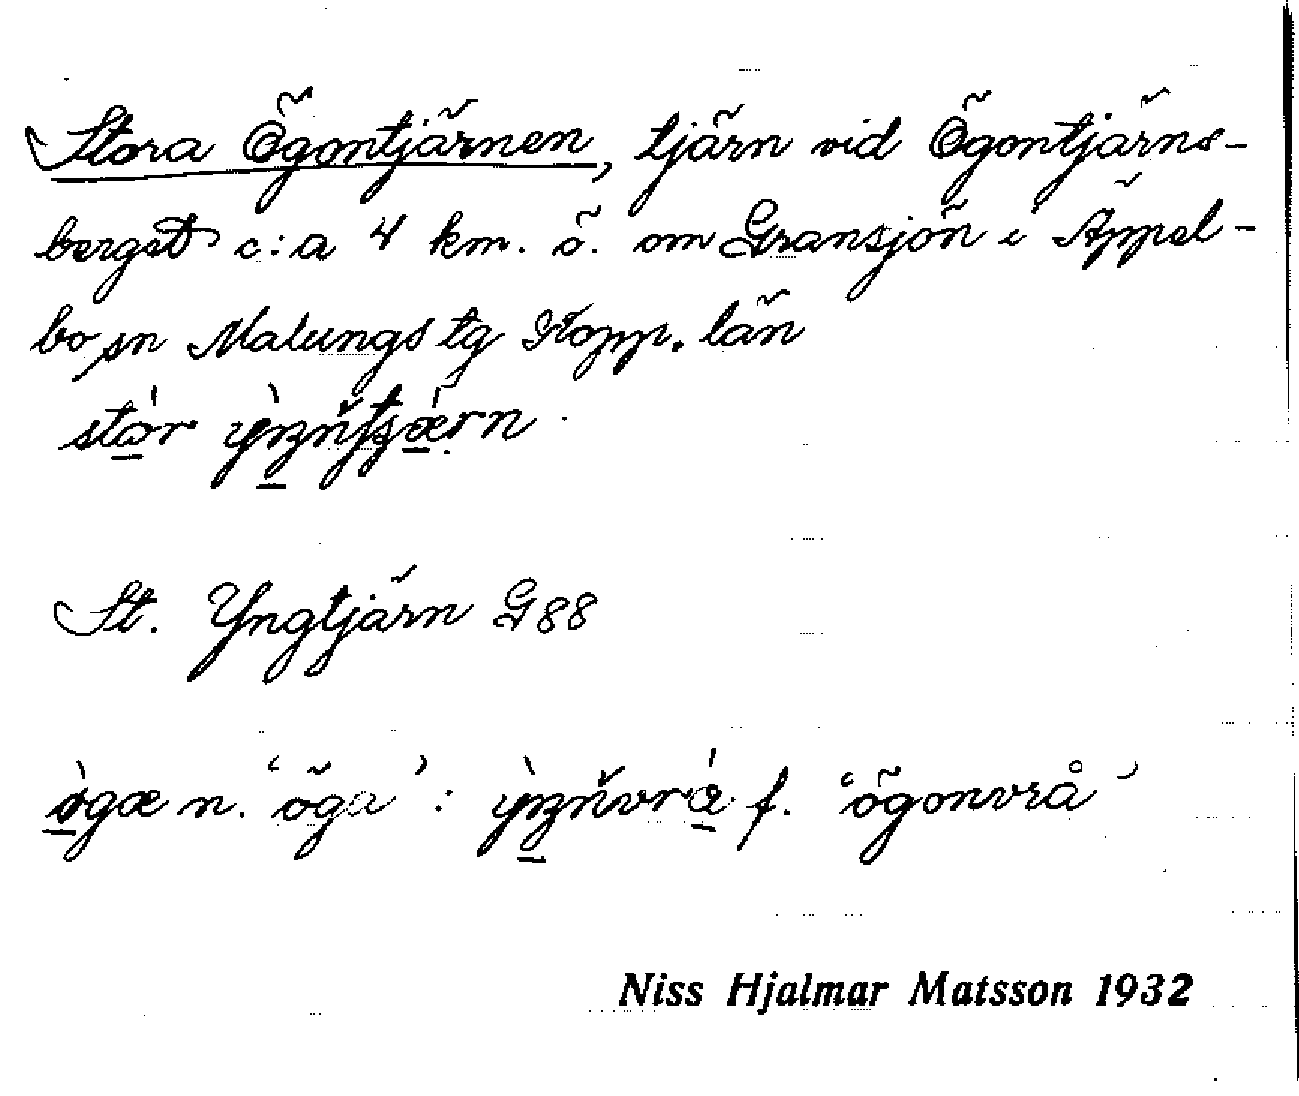 Stora Ögontjärnen, tjärn vid Ögontjärns-
berget c:a 4 km. ö. om Gransjön i Äppel-
bo sn Malungs tg Kopp. län
St. Yngtjärn G88
n. ‘öga’: f. ‘ögonvrå’
Niss Hjalmar Matsson 1932